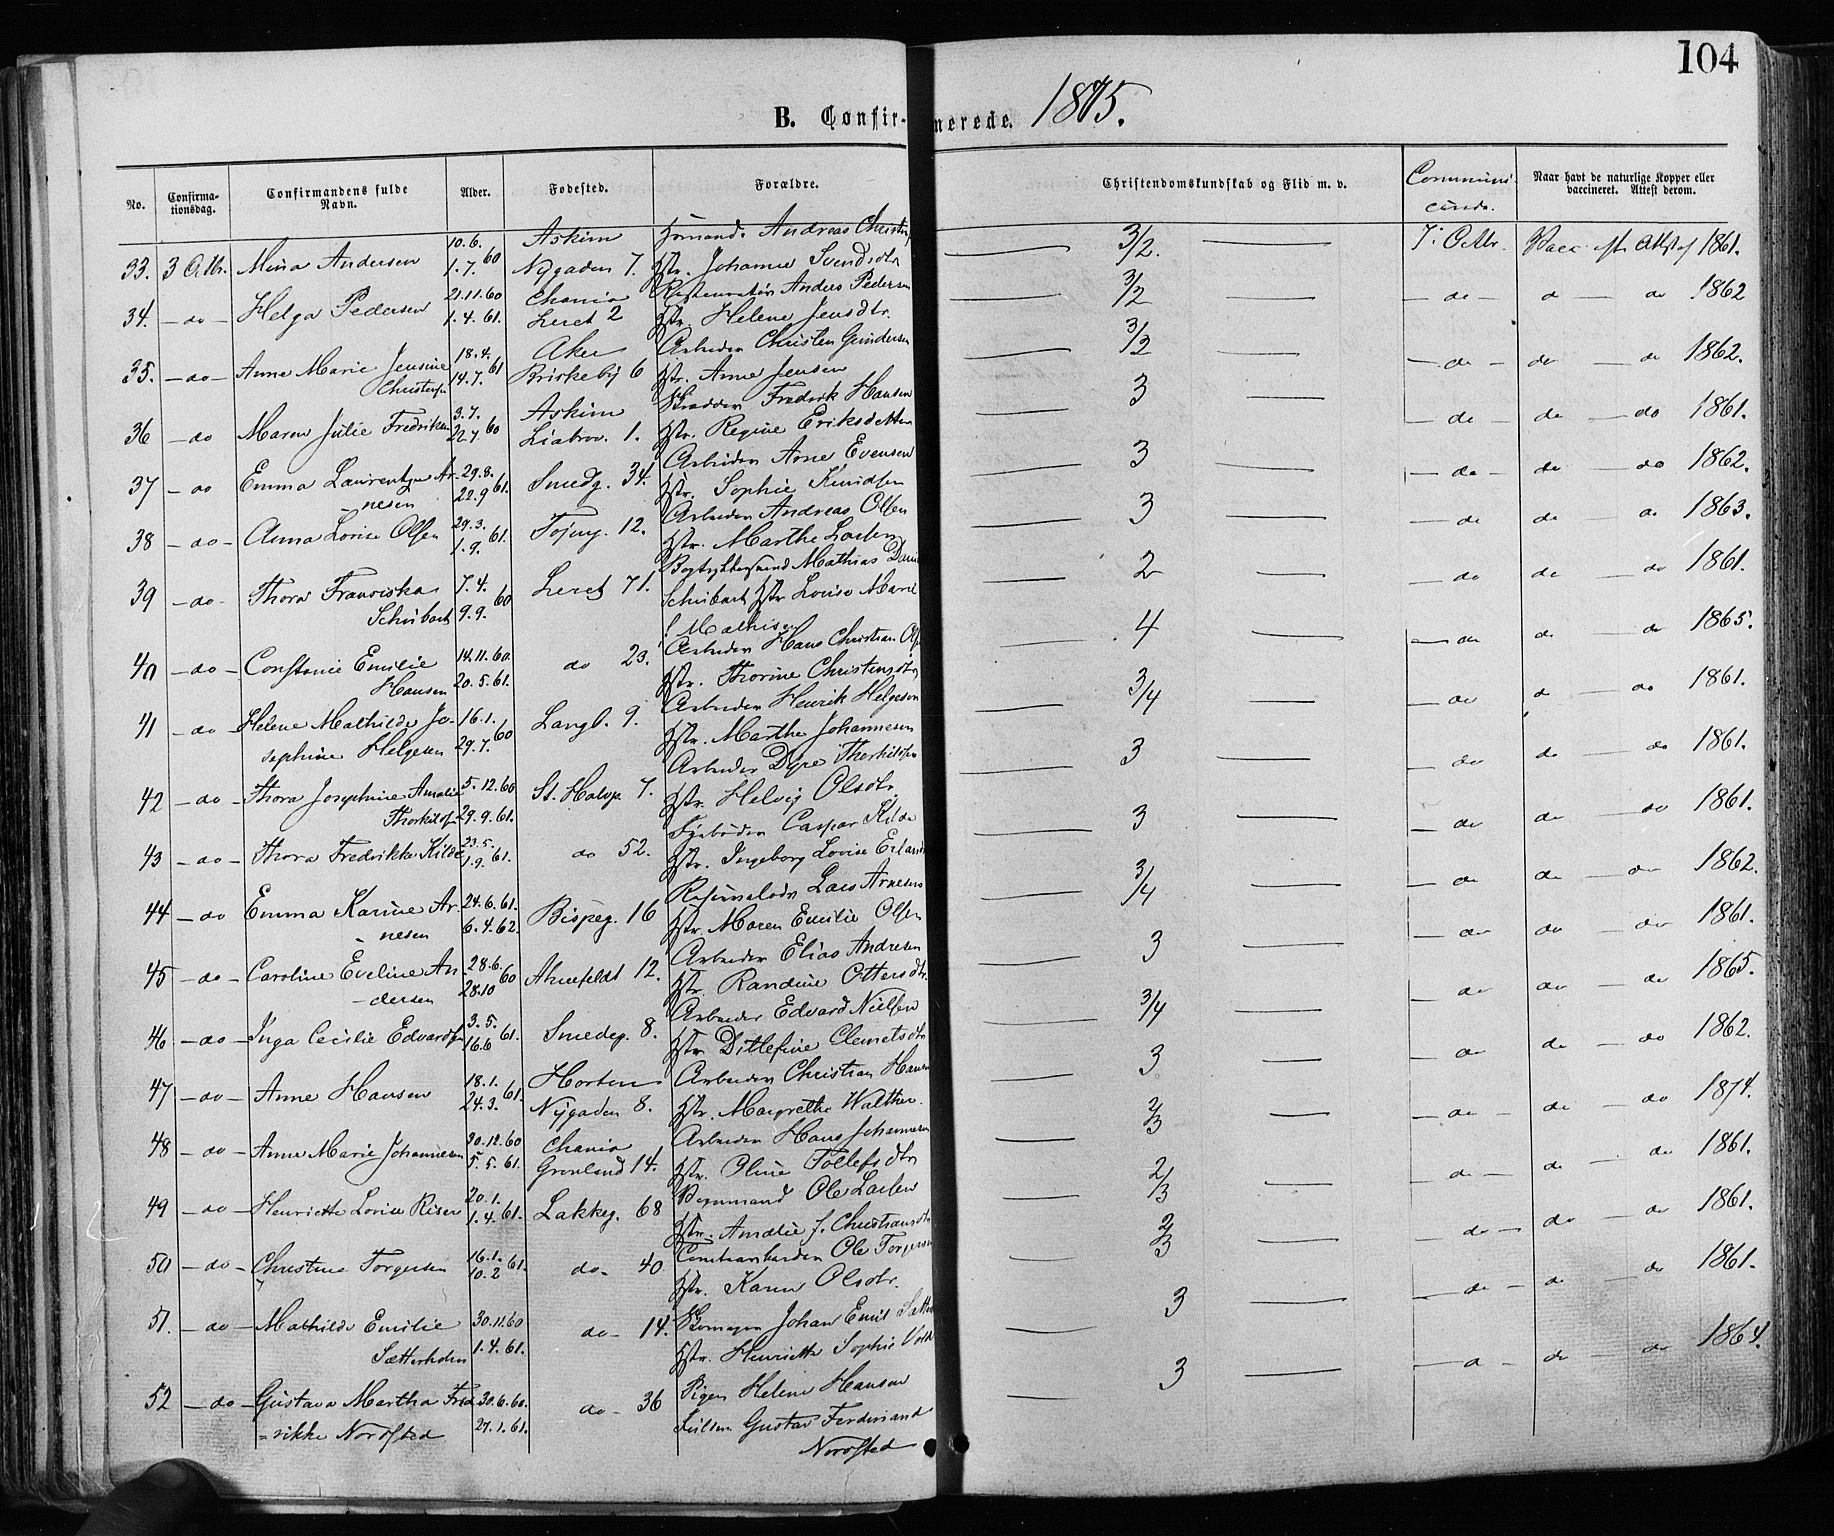 104
B. Confirmerede. 1875.
No. Confirmationsdag. Confirmandens fulde Navn. Alder. Fødested. Forældre. Christendomskundskab og Flid m. v. Communi- Naar havt de naturlige Kopper eller vaccineret. Attest derom.
10.6. Askim Andreas
33. 3 Mina Andersen 1.7. 60 Nygaden 7. Johanne Svendsdtr 3/2. 7. Octbr. Vacc. 1861.
21.11.60 Chania Anders Pedersen
34. — do — Helga Pedersen 1.4.61. Leret 2 Helene Jensdtr. 3/2 — do — d — do 1862
18.4. Aker Arbeider Christen Gundersen
35. — do — Anne Marie Jensine 14.7. 61 Briskeby 6 Anne Jensen 3/2 — do — do — do 1862.
3.7. Askim Frederik Hansen
36 — do Maren Julie Fredriksen 22.7 60 1. Regine Eriksdatter 3 — do — do — do 1861.
Arbeider Arne Evensen
37 — do Emma Laurentze Ar- 29.8. 22.9 61. Smedg. 34. Sophie Knudsen 3 — do — do — do 1862.
nesen Arbeider Andreas Olsen
38 — do — Anna Lovise Olsen 29.3. 1.9. 61. 12. Marthe Larsen 3 — do do — do 1863.
Mathias
39 — do — Thora Franciska 7.4. Leret 71. Schubart Lovise Marie 2 — do do — do 1861.
Schubart 9.9. 60 Mathisen
Arbeider Hans Christian
40 — do — Constance Emilie 14.11.60. do 23. Thorine 4 — do do — do 1865.
Hansen 20.5.61. Arbeider Henrik Helgesen
41 — do — Helene Mathilde Jo- 16.1. Langl. 9. Marthe Johannesen 3/4 — do d — do 1861.
sephine Helgesen 29.7. 60 Arbeider Thorkildsen
42 — do — Thora Josephine Amalie 5.12.60 St. Halvg. 7. Helvig Olsdtr. 3 — do do — do 1861.
29.9.61. Fyrbøder Caspar Kilde
43 — do — Thora Fredrikke Kilde 23.5. 1.9. 61. do 52. Ingeborg Lovise 3 — do do — do 1861.
Lars Arnesen
44 — do Emma Karine Ar- 24.6.61. Bispeg. 16 Maren Emilie Olsen 3/4 — do do — do 1862.
nesen 6.4.62. Arbeider Elias Andresen
45 — do — Caroline Eveline An- 28.6. Ahnefeldt 12. Randine Ottersdtr. 3 — do do — do 1861.
dersen 28.10 60 Arbeider Edvard Nielsen
46 — do — Inga Cecilie Edvardsen 3.5. 16.6 61. Smedeg. 8. Ditlefine Clemetsdtr 3/4 — do do — do 1865.
18.1. Horten Arbeider Christian Hansen
47 — do — Anne Hansen 24.3. 61. Nygaden 8. Margrethe Walther. 3 — do do — do 1862.
30.12.60 Chania Arbeider Hans Johannesen
48 — do — Anne Marie Johannesen 5.5.61. Grønland 14. Oline Tollefsdtr 2/3 — do — do — do 1874.
20.1. Ole Larsen
49 — do — Henriette Lovise 1.4. 61. Lakkeg. 68 Amalie f. Christiansdtr 2/3 — do — do — do 1861.
Ole Torgersen
50 — do — Christine Torgersen 16.1. 10.2 61. do 40 Karen Olsdtr. 2/3 — do — do — do 1861.
Johan Emil
51. — do — Mathilde Emilie 30.11.60 do — 14. Henriette Sophie 3 — do — d — do 1861.
Sætterholm 1.4.61.
52 — do — Gustava Martha Fred 30.6.60. do — 36 Pigen Helene Hansen 3 — d — do — do 1864.
rikke Nordsted 27.1.61. Gustav Ferdinand
Nordsted